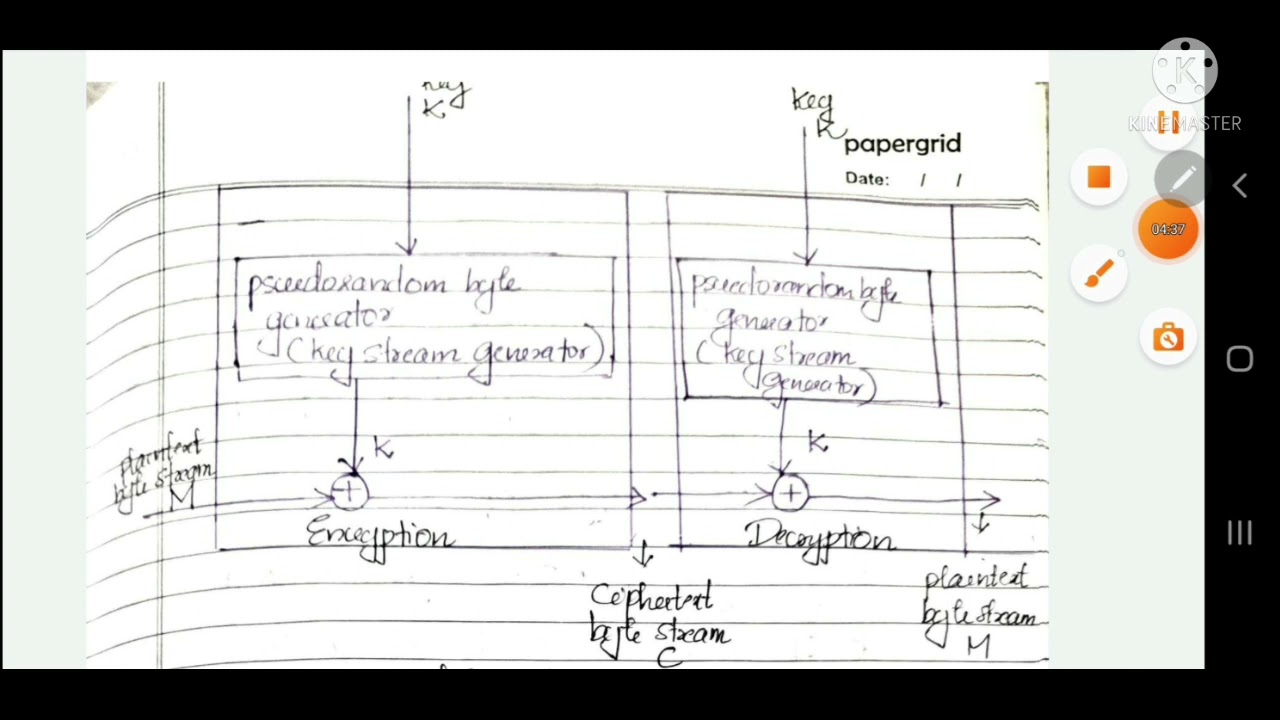 Key
K
Key
K
papergrid
Date: / /
KINEMASTER
04:37
pseudorandom byte
generator
(key stream generator)
pseudorandom byte
generator
(key stream
generator)
K
K
plaintext
byte stream
M
Encryption
Decryption
Ciphertext
byte stream
C
plaintext
byte stream
M